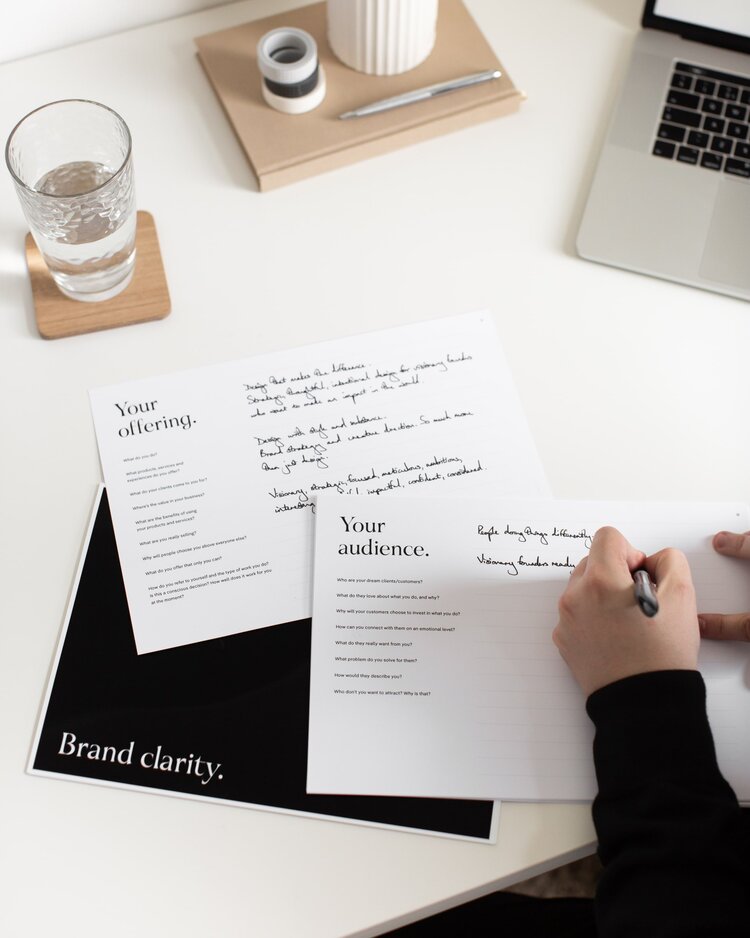 Your
offering.
What do you do?
What products, services and
experiences do you offer?
What do your clients come to you for?
Where's the value in your business?
What are the benefits of using
your products and services?
What are you really selling?
Why will people choose you above everyone else?
What do you offer that only you can?
How do you refer to yourself and the type of work you do?
Is this a conscious decision? How well does it work for you
at the moment?
Design that makes the difference.
Strategic, thoughtful, intentional design for visionary founders
who want to make an impact in the world
Design with style and substance.
Brand strategy and creative direction. So much more
than just design.
Visionary, strategic, focused, meticulous, ambitious,
interesting impactful, confident, considered.
Your
audience.
Who are your dream clients/customers?
What do they love about what you do, and why?
Why will your customers choose to invest in what you do?
How can you connect with them on an emotional level?
What do they really want from you?
What problem do you solve for them?
How would they describe you?
Who don't you want to attract? Why is that?
People doing things differently
Visionary founders ready
Brand clarity.